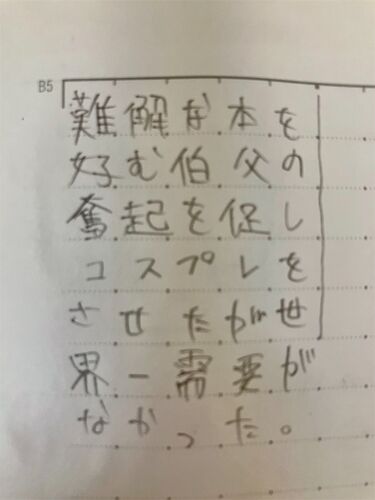 B5
難解な本を
好む伯父の
奮起を促し
コスプレを
させたが世
界一需要が
なかった。